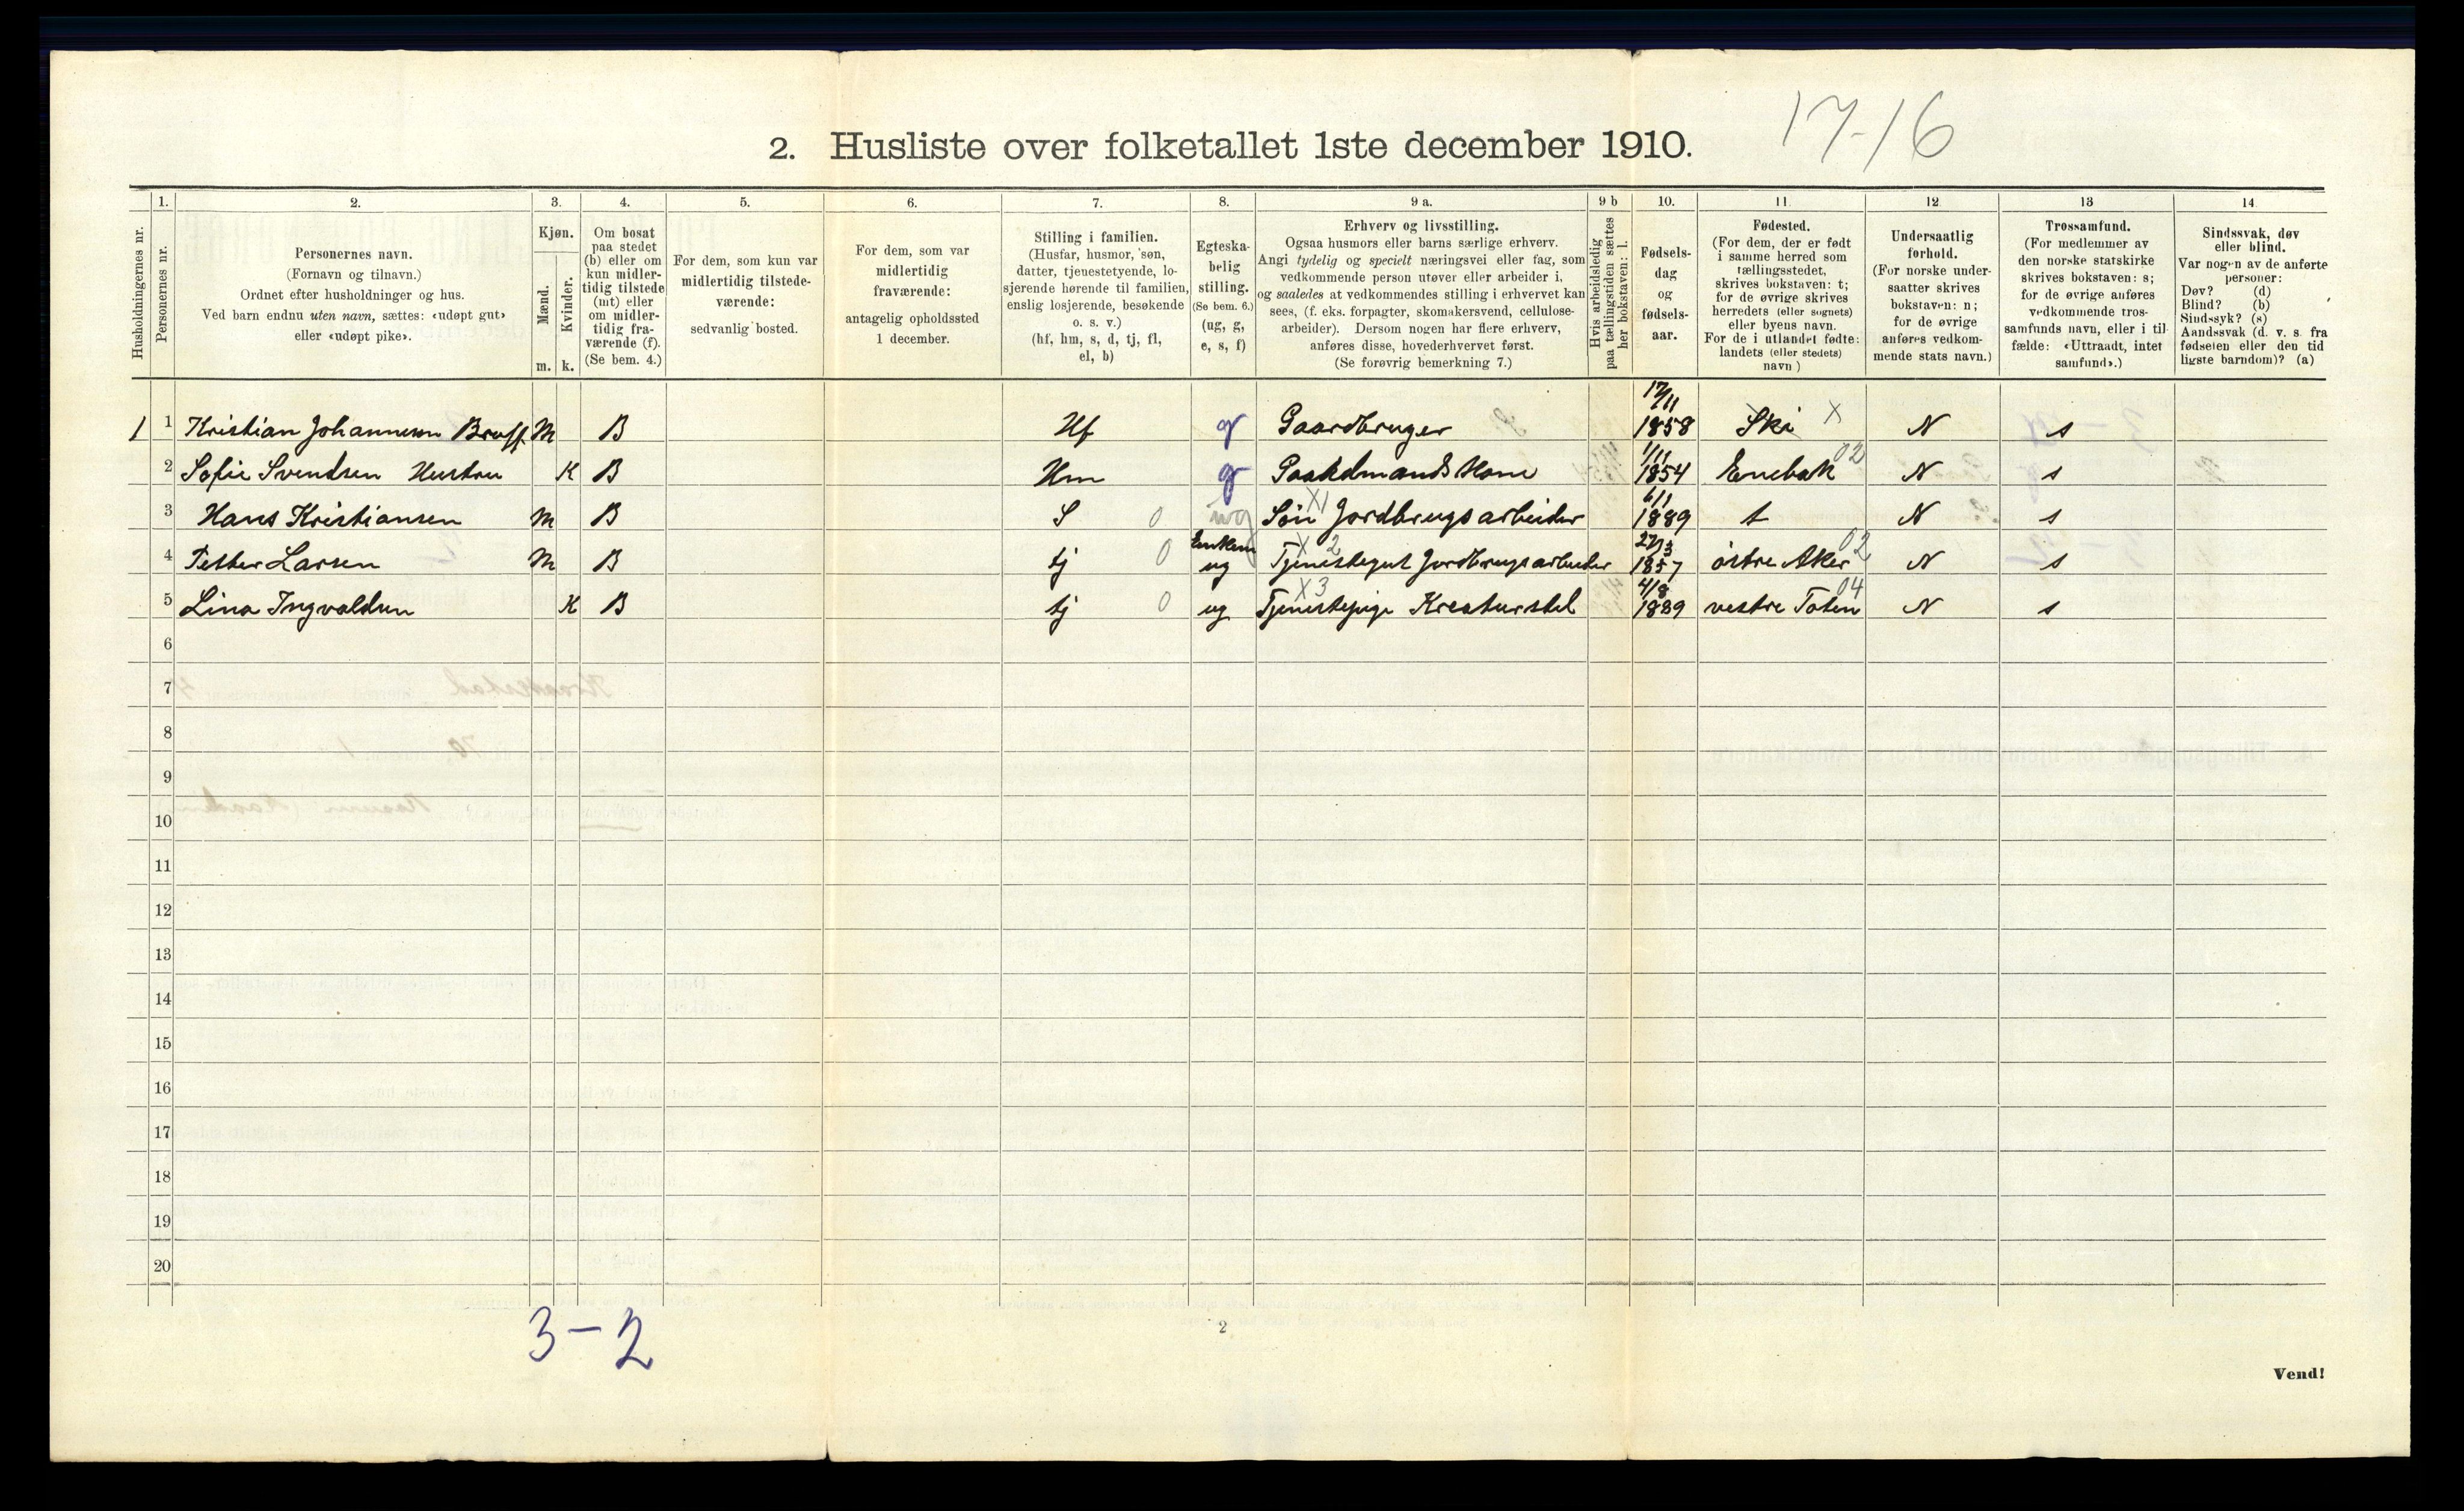 17-16
2. Husliste over folketallet 1ste december 1910.
Husholdningernes nr.
1.
Personernes nr.
2.
Personernes navn.
(Fornavn og tilnavn.)
Ordnet efter husholdninger og hus.
Ved barn endnu uten navn, sættes: «udøpt gut»
eller «udøpt pike».
3.
Kjøn.
Mænd.
Kvinder.
m. k.
4.
Om bosat
paa stedet
(b) eller om
kun midler-
tidig tilstede
(mt) eller
om midler-
tidig fra-
værende (f).
(Se bem. 4.)
5.
For dem, som kun var
midlertidig tilstede-
værende:
sedvanlig bosted.
6.
For dem, som var
midlertidig
fraværende:
antagelig opholdssted
1 december.
7.
Stilling i familien.
(Husfar, husmor, søn,
datter, tjenestetyende, lo-
sjerende hørende til familien,
enslig losjerende, besøkende
o. s. v.)
(hf, hm, s, d, tj, fl,
el, b)
8.
Egteska-
belig
stilling.
(Se bem. 6.)
(ug, g,
e, s, f)
9 a.
Erhverv og livsstilling.
Ogsaa husmors eller barns særlige erhverv.
Angi tydelig og specielt næringsvei eller fag, som
vedkommende person utøver eller arbeider i,
og saaledes at vedkommendes stilling i erhvervet kan
sees, (f. eks. forpagter, skomakersvend, cellulose-
arbeider). Dersom nogen har flere erhverv,
anføres disse, hovederhvervet først.
(Se forøvrig bemerkning 7.)
9 b
Hvis arbeidsledig
paa tællingstiden sættes
her bokstaven: l.
10.
Fødsels-
dag
og
fødsels-
aar.
11.
Fødested.
(For dem, der er født
i samme herred som
tællingsstedet,
skrives bokstaven: t;
for de øvrige skrives
herredets (eller sognets)
eller byens navn.
For de i utlandet fødte:
landets (eller stedets)
navn)
12
Undersaatlig
forhold.
(For norske under-
saatter skrives
bokstaven: n;
for de øvrige
anføres vedkom-
mende stats navn.)
13
Trossamfund.
(For medlemmer av
den norske statskirke
skrives bokstaven: s;
for de øvrige anføres
vedkommende tros-
samfunds navn, eller i til
fælde: «Uttraadt, intet
samfund».)
14
Sindssvak, døv
eller blind.
Var nogen av de anførte
personer:
Døv? (d)
Blind? (b)
Sindssyk? (s)
Aandssvak (d. v. s. fra
fødselen eller den tid
ligste barndom)? (a)
1 1 Kristian Johannesen M B Hf g Gaardbruger 17/11 1858 Ski X N s
2 Sofie Svendsen Hustru K B Hm g Gaardmands Kone 1/11 1854 Enebak 02 N s
3 Hans Kristiansen M B S 0 ug X1 Søn Jordbrugsarbeider 6/1 1889 t N s
4 Petter Larsen M B tj 0 Enkem ug X 2 Tjenestegut Jordbrugsarbeider 27/3 1857 østre Aker 02 N s
5 Lina Ingvaldsen K B tj 0 ug X3 Tjenestepige Kreaturstel 4/8 1889 vestre Toten 04 N s
6
7
8
9
10
11
12
13
14
15
16
17
18
19
20
3-2
2
Vend!